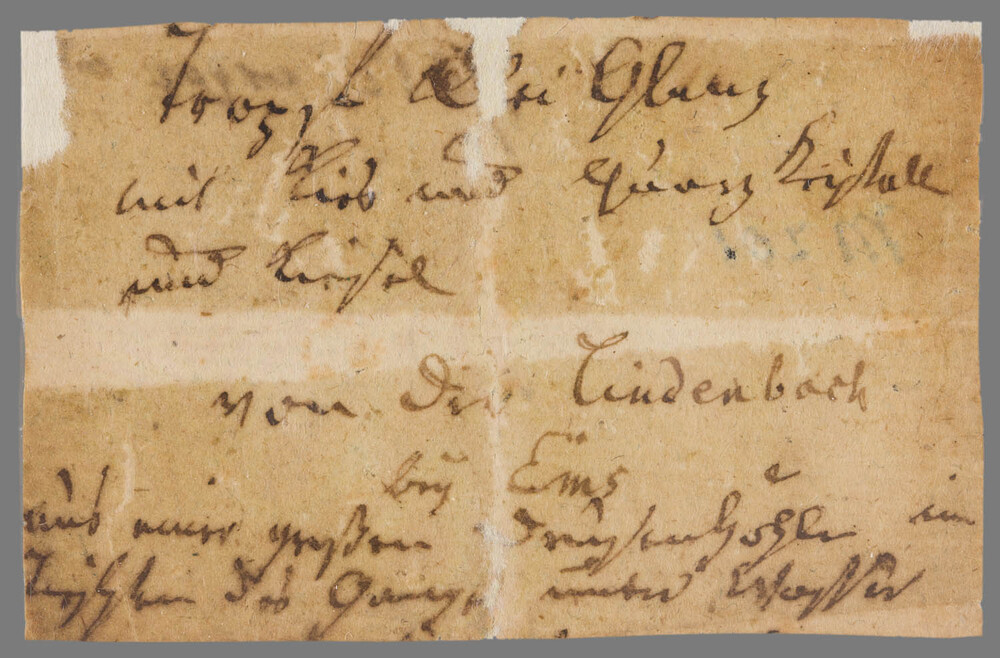 Bleі Glanz
mit Kies und Quarz Kristall
und Kiesel
von der Lindenbach
bey Ems
aus einer großen Drusenhöhle im
des Ganges unter Wasser